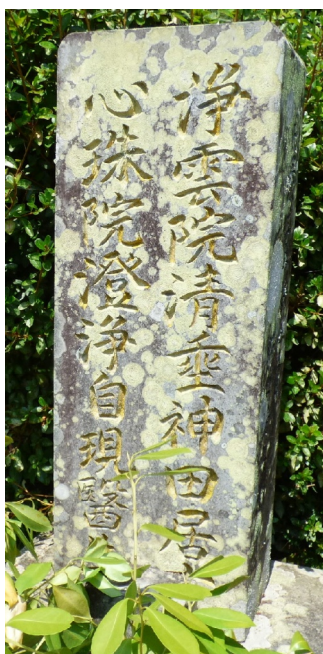 浄雲院清埀神田居
心珠院澄浄自現醫